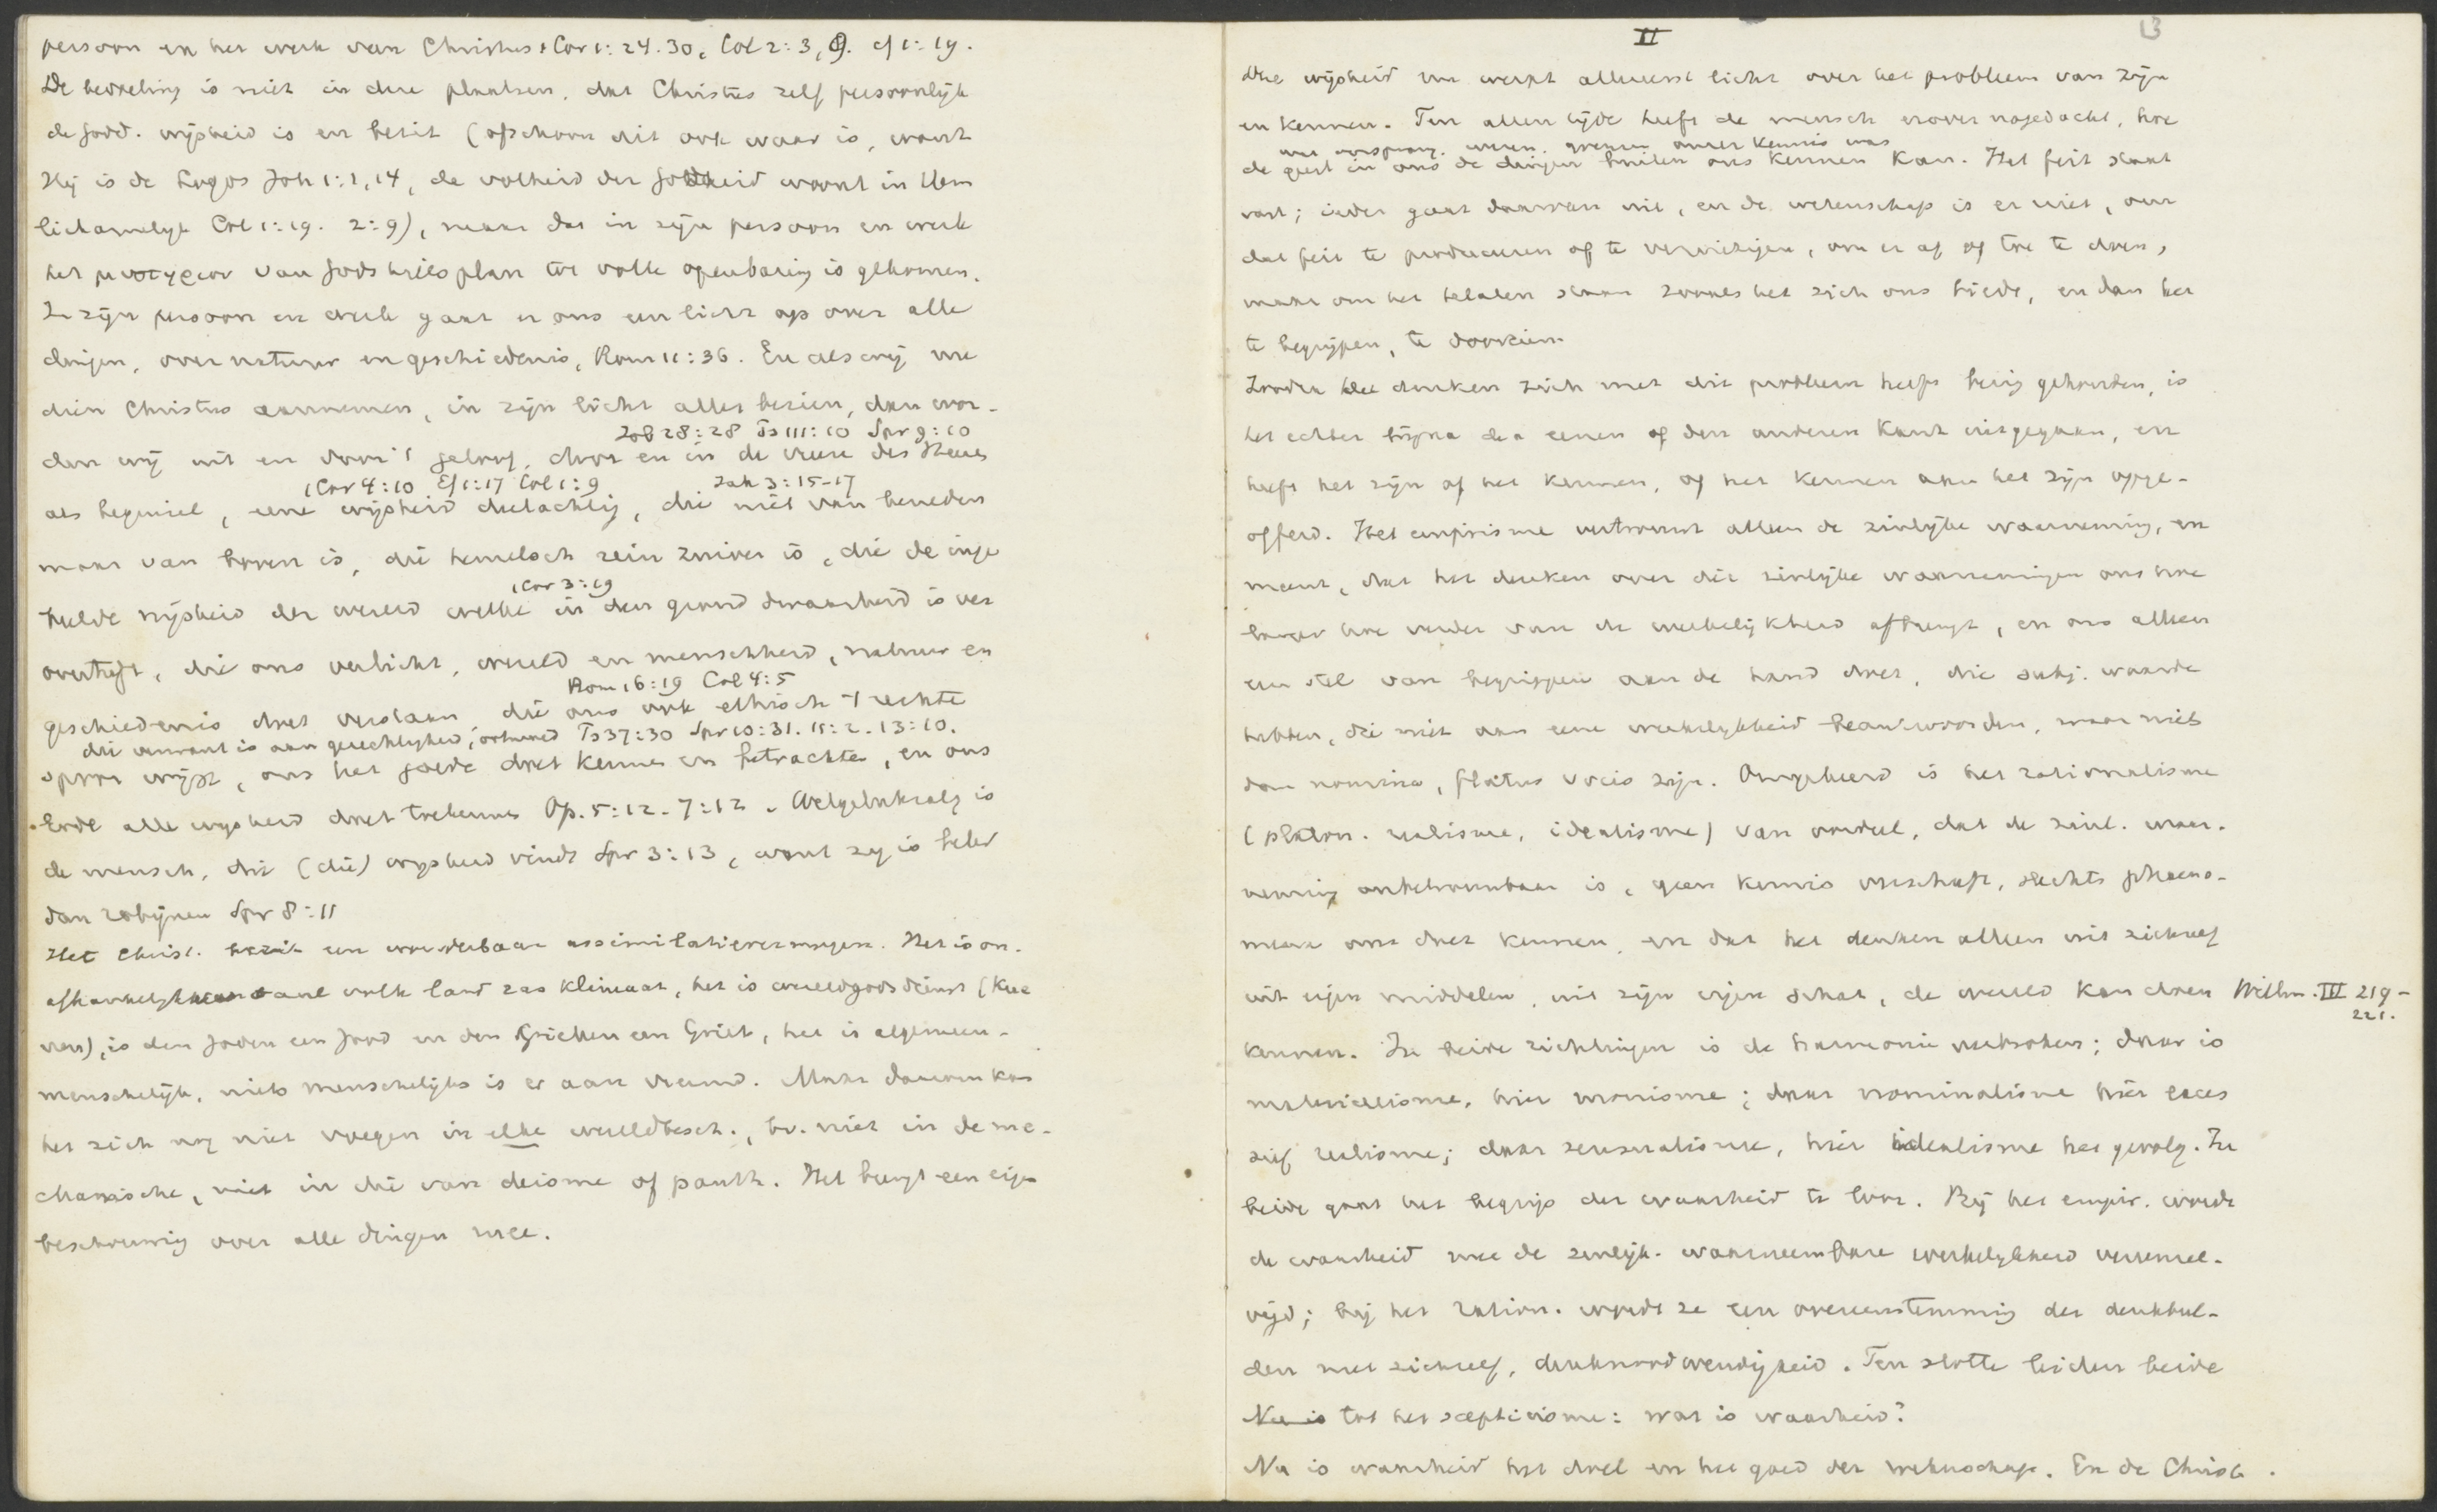 persoon en het werk van Christus 1 Cor 1:24.30, Col 2:3, 9. cf 1:19.
De bedoeling is niet in deze plaatsen, dat Christus zelf persoonlijk
de godd. wijsheid is en bezit (ofschoon dit ook waar is, want
Hij is de Logos Joh 1:1,14, de volheid der Godheid woont in Hem
lichamelijk Col 1:19. 2:9), maar dat in zijn persoon en werk
het μυστηριον van Gods heilsplan tot volle openbaring is gekomen.
In zijn persoon en werk gaat er ons een licht op over alle
dingen, over natuur en geschiedenis, Rom 11:36. En als wij nu
dien Christus aannemen, in zijn licht alles bezien, dan wor-
Job 28:28 Ps 111:10 Spr 9:10
den wij uit en door 't geloof, door en in de vreeze des Heeren
1 Cor 4:10 Ef 1:17 Col 1:9 Jak 3:15-17
als beginsel, eene wijsheid deelachtig, die niet van beneden
maar van boven is, die hemelsch rein zuiver is, die de inge
1 Cor 3:19
beelde wijsheid der wereld welke in den grond dwaasheid is ver
overtreft, die ons verlicht, wereld en menschheid, natuur en
Rom 16:19 Col 4:5
geschiedenis doet verstaan, die ons ook ethisch 't rechte
die verwant is aan gerechtigheid, ootmoed Ps 37:30 Spr 10:31. 11:2. 13:10.
spoor wijst, ons het goede doet kennen en betrachten, en ons
Gode alle wijsheid doet toekennen Op. 5:12. 7:12. Welgelukzalig is
de mensch, die (die) wijsheid vindt Spr 3:13, want zij is beter
dan robijnen Spr 8:11
Het Christ. bezit een wonderbaar assimilatievermogen. Het is on-
afhankelijk van volk land ras klimaat, het is wereldgodsdienst (Kue
nen), is den Joden een Jood en den Grieken een Griek, het is algemeen-
menschelijk, niets menschelijks is er aan vreemd. Maar daarom kan
het zich nog niet voegen in elke wereldbesch., bv. niet in de me-
chanische, niet in die van deisme of panth. Het brengt een eigen
beschouwing over alle dingen mee.
II
13
Die wijsheid nu werpt allereerst licht over het probleem van zijn
en kennen. Ten allen tijde heeft de mensch erover nagedacht, hoe
wat oorsprong. wezen. grenzen onzer kennis was
de geest in ons de dingen buiten ons kennen kan. Het feit staat
vast; ieder gaat daarvan uit, en de wetenschap is er niet, om
dat feit te produceeren of te vernietigen, om er af of toe te doen,
maar om het te laten staan zooals het zich ons biedt, en dan het
te begrijpen, te doorzien.
Zoodra het denken zich met dit probleem heeft bezig gehouden, is
het echter bijna den eenen of den anderen kant uitgegaan, en
heeft het zijn of het kennen, of het kennen aan het zijn opge-
offerd. Het empirisme vertrouwt alleen de zinlijke waarneming, en
meent, dat het denken over die zinlijke waarnemingen ons hoe
langer hoe verder van de werkelijkheid afbrengt, en ons alleen
een stel van begrippen aan de hand doet, die subj. waarde
hebben, die niet aan eene werkelijkheid beantwoorden, maar niets
dan nomina, flatus vocis zijn. Omgekeerd is het rationalisme
(platon. realisme, idealisme) van oordeel, dat de zinl. waar-
neming onbetrouwbaar is, geen kennis verschaft, slechts phaeno-
mena ons doet kennen, en dat het denken alleen uit zichzelf
uit eigen middelen, uit zijn eigen schat, de wereld kan doen
Willm. III 219-
221.
kennen. In beide richtingen is de harmonie verbroken; daar is
materialisme, hier monisme; daar nominalisme hier exces
sief realisme; daar sensualisme, hier idealisme het gevolg. In
beide gaat het begrip der waarheid te loor. Bij het empir. wordt
de waarheid met de zinlijk-waarneembare werkelijkheid vereenzel-
vigd; bij het ration. wordt ze een overeenstemming der denkbeel-
den met zichzelf, denknoodwendigheid. Ten slotte leiden beide
Nu is tot het scepticisme: wat is waarheid?
Nu is waarheid het doel en het goed der wetenschap. En de Christ.